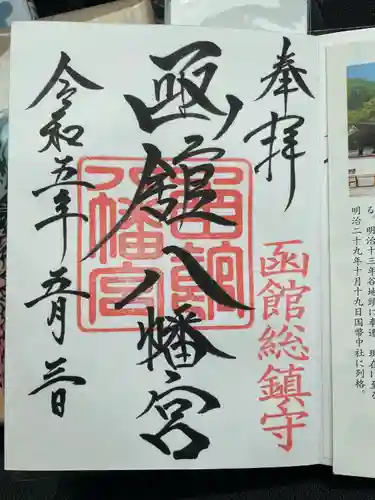 奉拝
函館総鎮守
函館八幡宮
函館
八幡宮
令和五年五月三日
明治十三年谷地頭に奉遷
明治二十九年十月十九日国幣中社に列格。